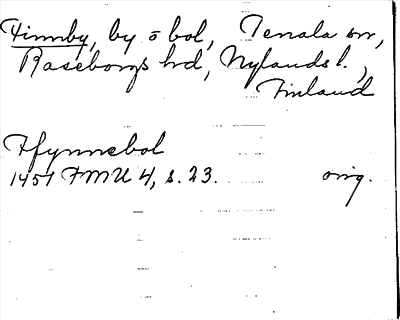 Finnby, by o bol, Tenala sn,
Raseborgs hd, Nylands l.,
Finland
Ffynnebol
1451 FMU 4, s. 23. orig.